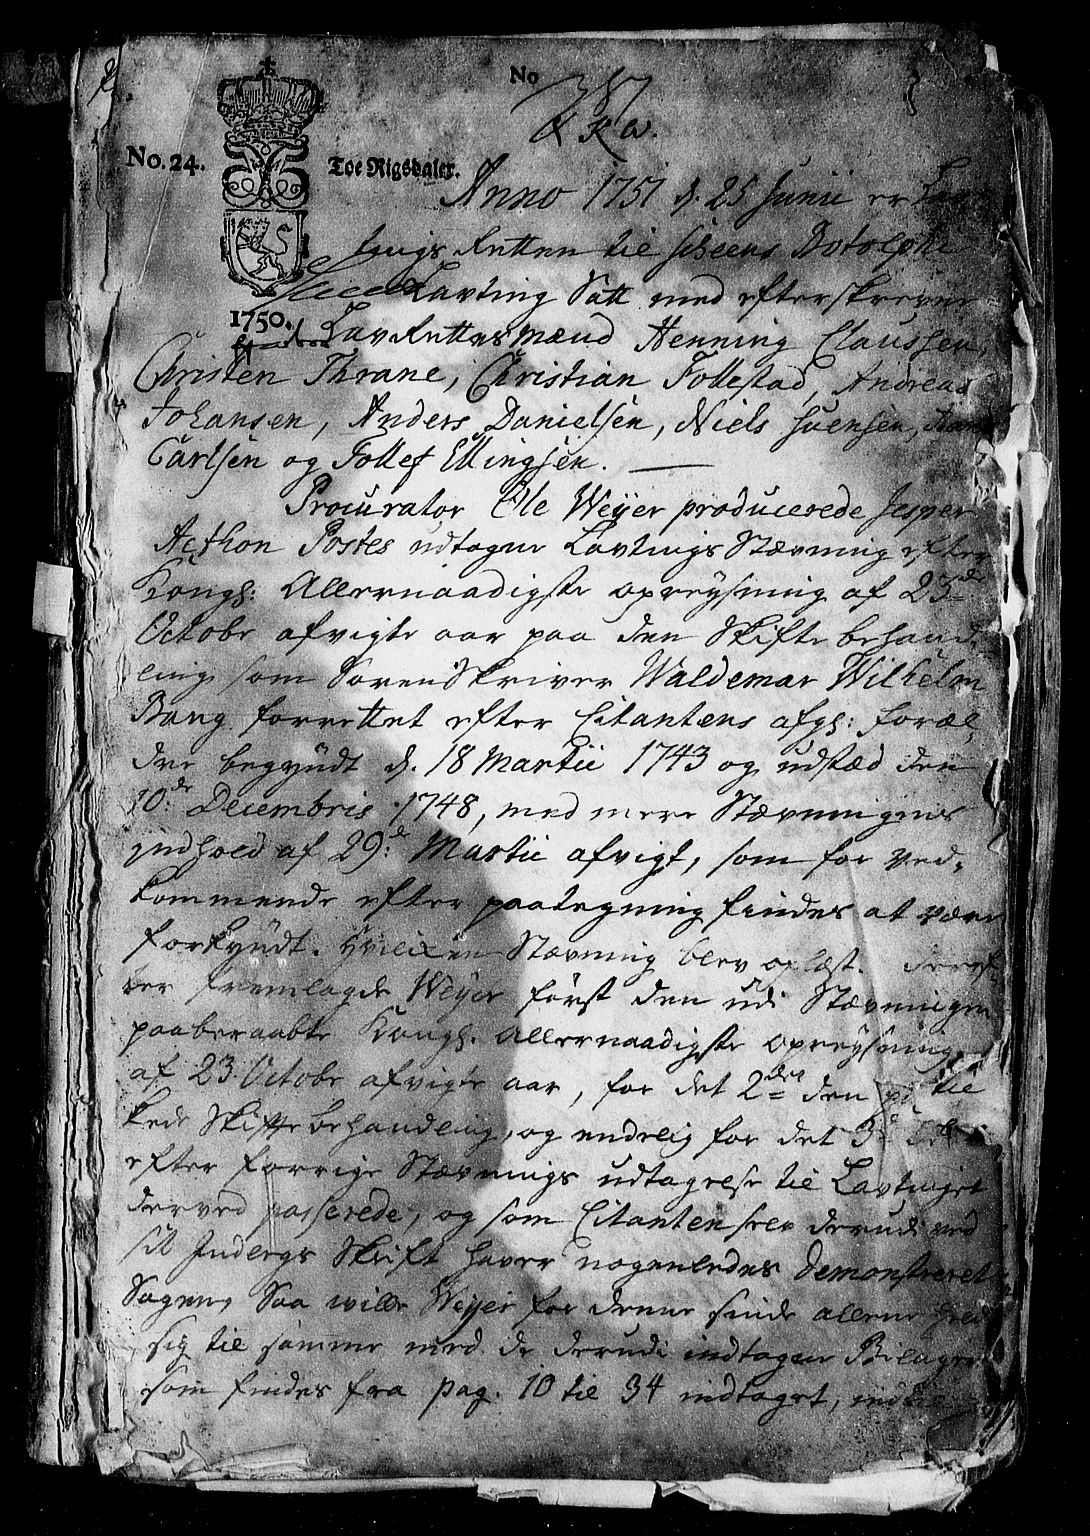 No
No. 24.
Toe Rigsdaler.
1750.
Anno 1751 d. 25 Junii er Lau-
tings Retten til Scheens Botolphi
Lavting Satt med efterskrevne
LavRettesmænd Henning Claussen,
Christen Thrane, Christian Follestad, Andreas
Johansen, Anders Danielsen, Niels Svensen,
Carlsen og Tollef Ellingsen.
Procurator Ole Weyer producerede Jesper
Acthon Postes udtagne LavtingsStævning efter
Kongl: Allernaadigste opreysning af 23de
Octobr afvigte aar paa den Skifte behand-
ling som SorenSkriver Waldemar Wilhelm
Bang forrettet efter Citantens afgl: foræl-
dre begyndt d. 18 Martii 1743 og udstæd den
10de Decembris 1748, med mere Stævningens
indhold af 29d Martii afvigt, som for ved-
kommende efter paategning findes at være
forkyndt. Hvilken Stævning blev oplæst. Deref-
ter fremlagde Weyer först den udi Stævningen
paaberaabte Kongl. allernaadigste opreysning
af 23 Octobr afvigte aar, for det 2det den paa til
kede Skifte behandling, og endelig for det 3d
efter forrige Stævnings udtagelse til Lavtinget
derved passerede, og som Citanten selv derudi ved
sit Indlegs Skrift haver nogenledes demonstreret
Sagen, Saa wille Weyer for denne sinde allene
sig til samme med de derudi indtagne Bilager
som findes fra pag. 10 til 34 indtaget,